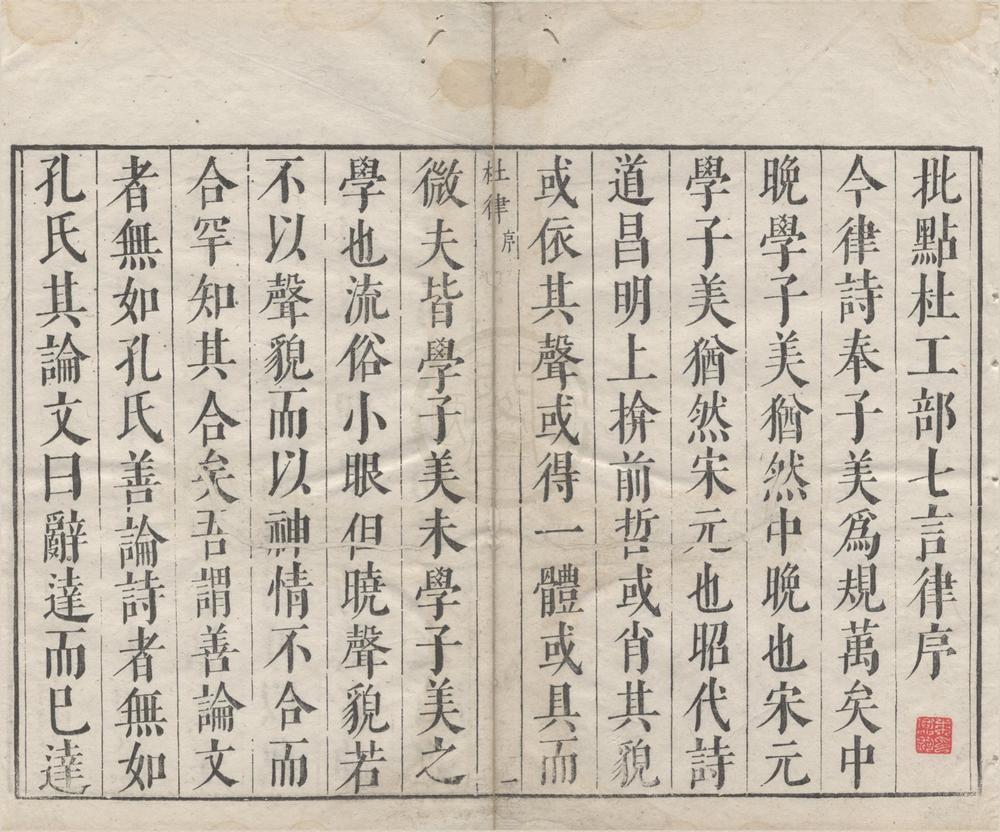 批點杜工部七言律序
今律詩奉子美爲規萬矣中
晚學子美猶然中晚也宋元
學子美猶然宋元也昭代詩
道昌明上揜前哲或肖其貌
或依其聲或得一體或具而
杜律序
一
微夫皆學子美未學子美之
學也流俗小眼但曉聲貌若
不以聲貌而以神情不合而
合罕知其合矣吾謂善論文
者無如孔氏善論詩者無如
孔氏其論文曰辭達而已達